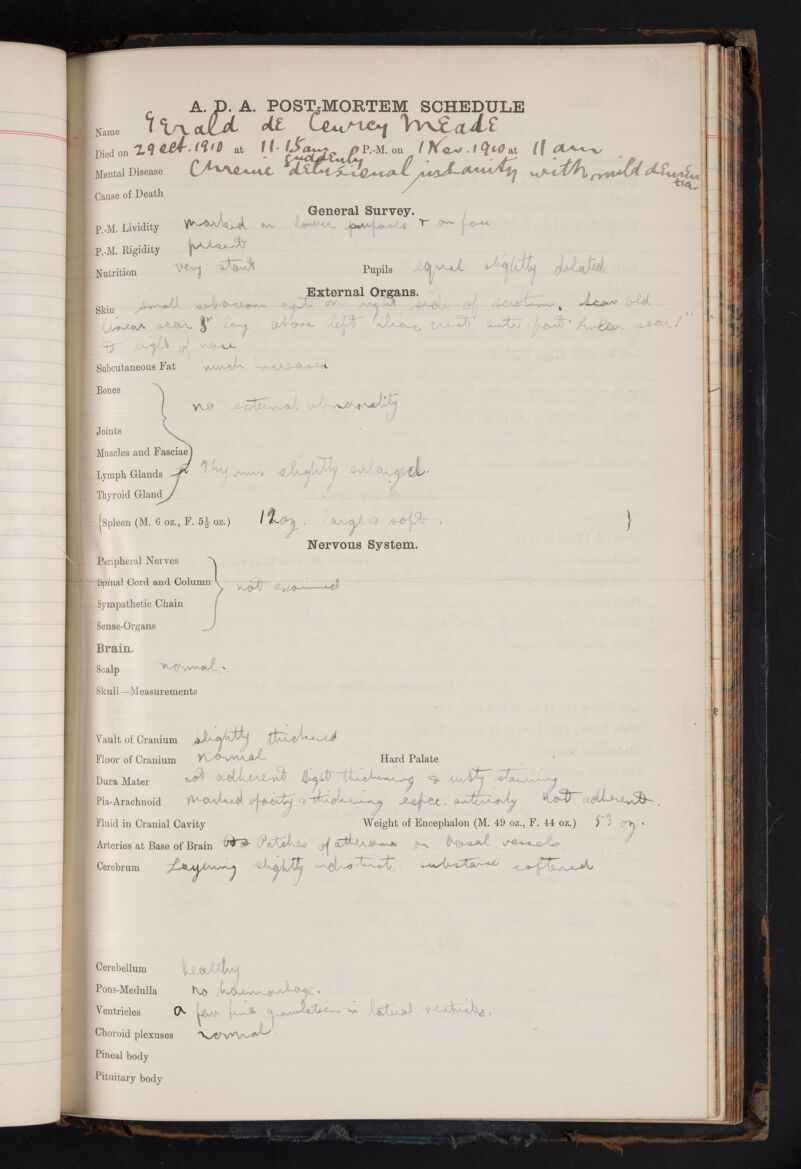 A. D. A. POST-MORTEM SCHEDULE
Name Gerald de Courcy Meade
Died on 29 Oct. 1910 at 11.15 am P.-M. on 1 Nov. 1910 at 11 am
suddenly
Mental Disease Chronic delusional insanity with mild demen
tia
Cause of Death
General Survey.
P.-M. Lividity Marked on lower surfaces & on face
P.-M. Rigidity present
Nutrition very stout Pupils equal slightly dilated
External Organs.
Skin small sebaceous cyst on right side of scrotum. Scar old
linear scar 3" long above left iliac crest anter. part. linear scar 1"
to right of nose
Subcutaneous Fat much increased
Bones
no external abnormality
Joints
Muscles and Fasciae
Lymph Glands Thymus slightly enlarged.
Thyroid Gland
(Spleen (M. 6 oz., F. 5½ oz.) 12 oz. large & soft. }
Nervous System.
Peripheral Nerves
Spinal Cord and Column not examined
Sympathetic Chain
Sense-Organs
Brain.
Scalp normal.
Skull—Measurements
Vault of Cranium slightly thickened
Floor of Cranium normal Hard Palate
Dura Mater not adherent. slight thickening & rusty staining
Pia-Arachnoid Marked opacity & thickening espec. anteriorly. Not adherent.
Fluid in Cranial Cavity Weight of Encephalon (M. 49 oz., F. 44 oz.) 53 oz.
Arteries at Base of Brain Patches of atheroma on basal vessels
Cerebrum Layering slightly indistinct. substance softened
Cerebellum healthy
Pons-Medulla No haemorrhage.
Ventricles A few fine granulations in lateral ventricles.
Choroid plexuses normal.
Pineal body
Pituitary body